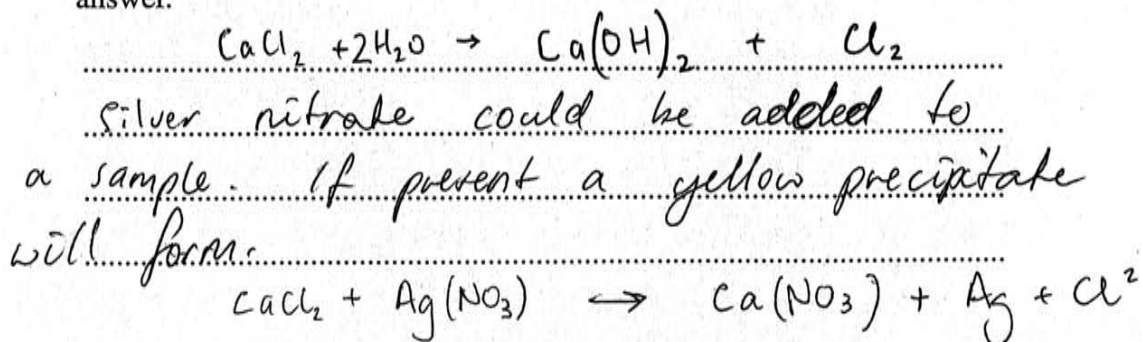 answer.
CaCl₂ + 2H₂O → Ca(OH)₂ + Cl₂
silver nitrate could be added to
a sample. If present a yellow precipitate
will form.
CaCl₂ + Ag(NO₃) → Ca(NO₃) + Ag + Cl²